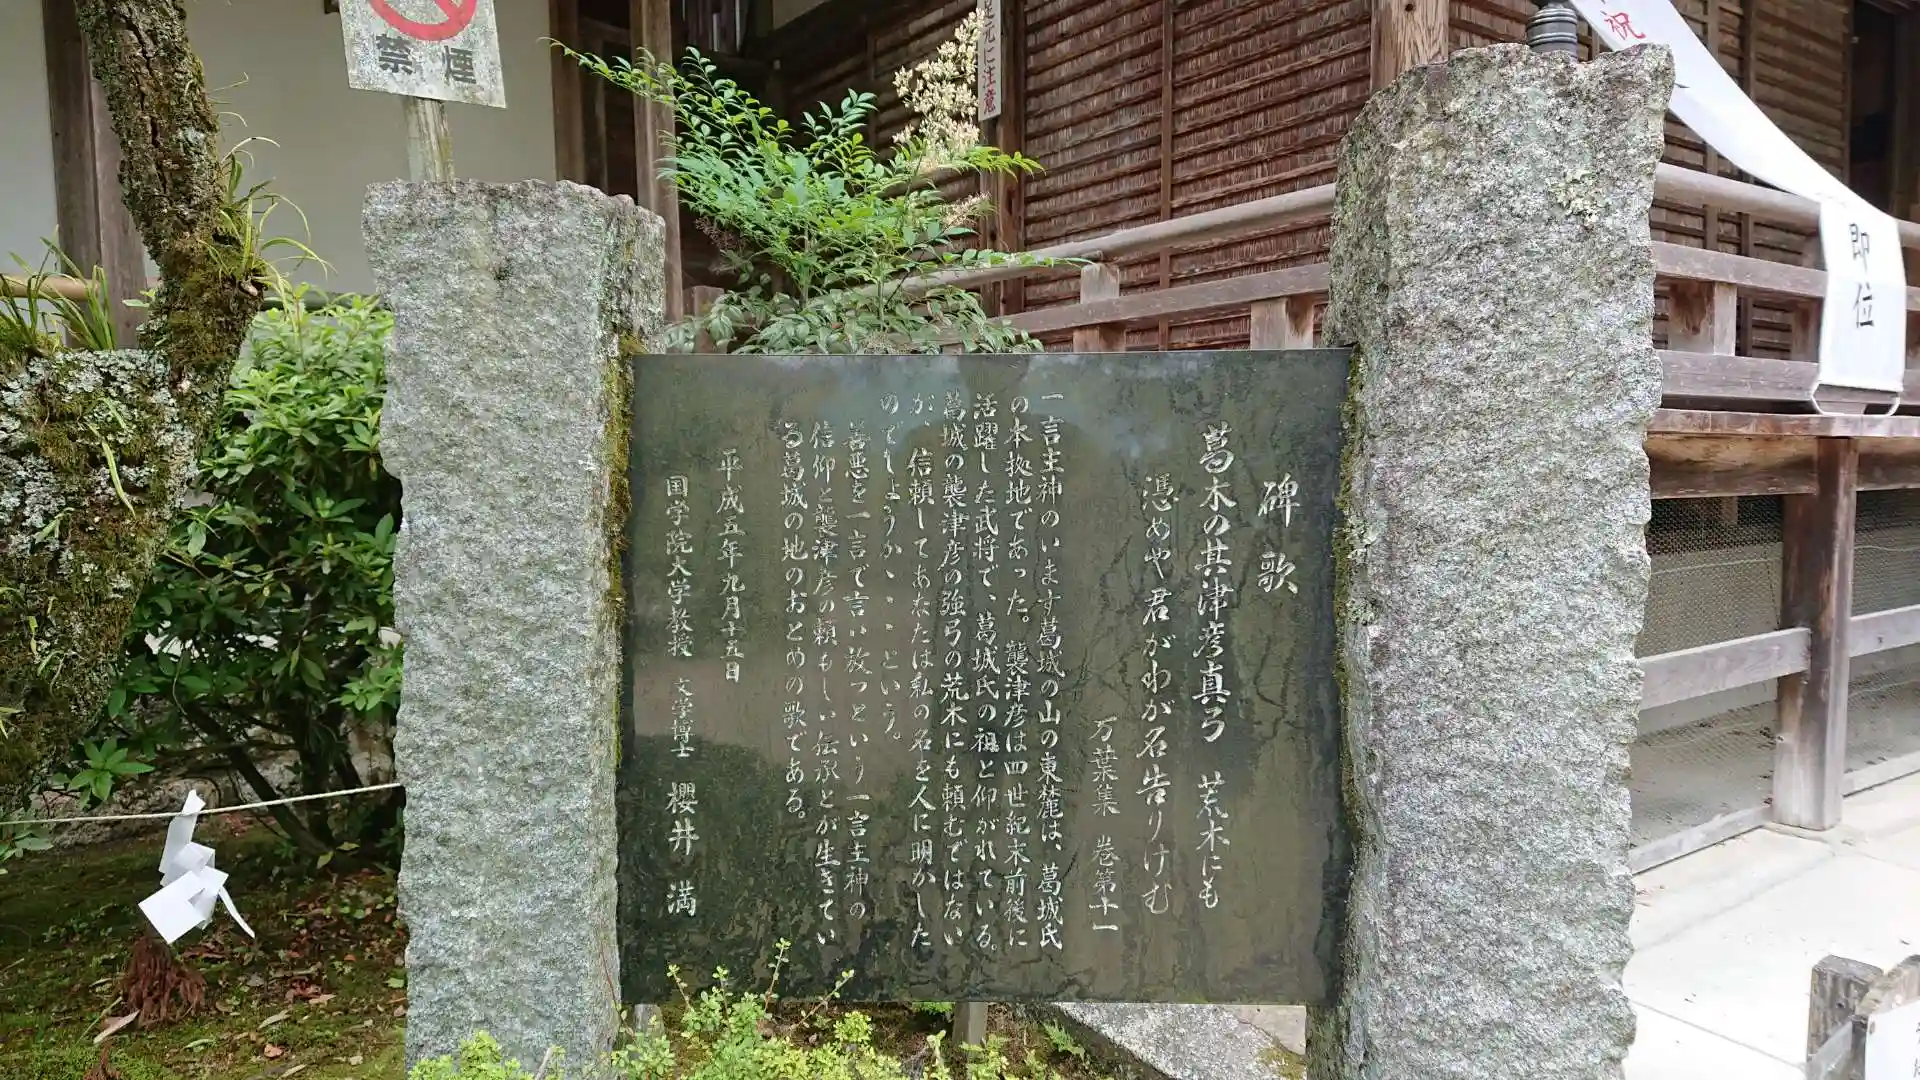 碑歌
葛木の其津彦真弓 荒木にも
憑めや君がわが名告りけむ
万葉集 巻第十一
一言主神のいます葛城の山の東麓は、葛城氏
の本拠地であった。襲津彦は四世紀末前後に
活躍した武将で、葛城氏の祖と仰がれている。
葛城の襲津彦の強弓の荒木にも頼むではない
が、信頼してあなたは私の名を人に明かした
のでしょうか、、という。
善悪を一言で言い放つという一言主神の
信仰と襲津彦の頼もしい伝承とが生きてい
る葛城の地のおとめの歌である。
平成五年九月十五日
国学院大学教授 文学博士 櫻井満
禁煙
足元に注意
祝
即位